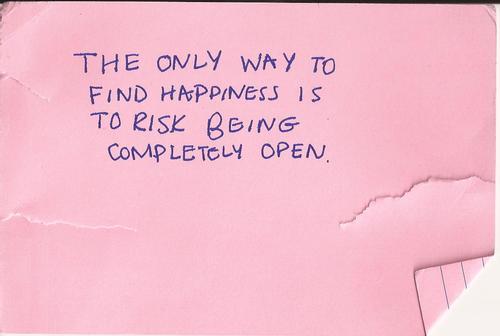 THE ONLY WAY TO
FIND HAPPINESS IS
TO RISK BEING
COMPLETELY OPEN.